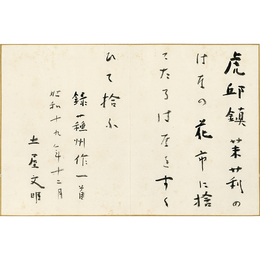 虎邱鎮茉莉の
はなの花市に捨
てたるはなをすく
ひて拾ふ
録 州作一首
昭和十九年十二月
土屋文明